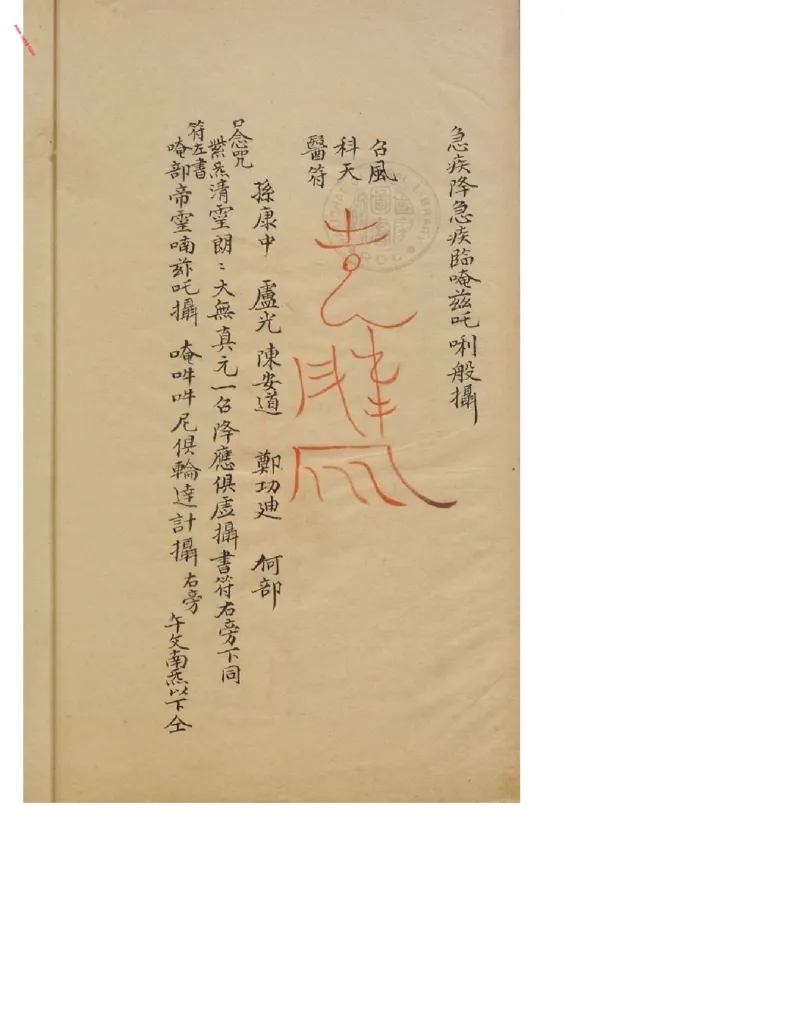 急疾降急疾臨唵兹吒唎般攝
召風
科天
醫符
孫康中 盧光 陳安道 鄭功廸 何部
口念咒
紫炁清霊朗〻大無真元一召降應俱虛攝書符右旁下同
符左書
唵部帝霊喃兹吒攝 唵吽吽尼俱輪達計攝右旁
午文南炁以下仝